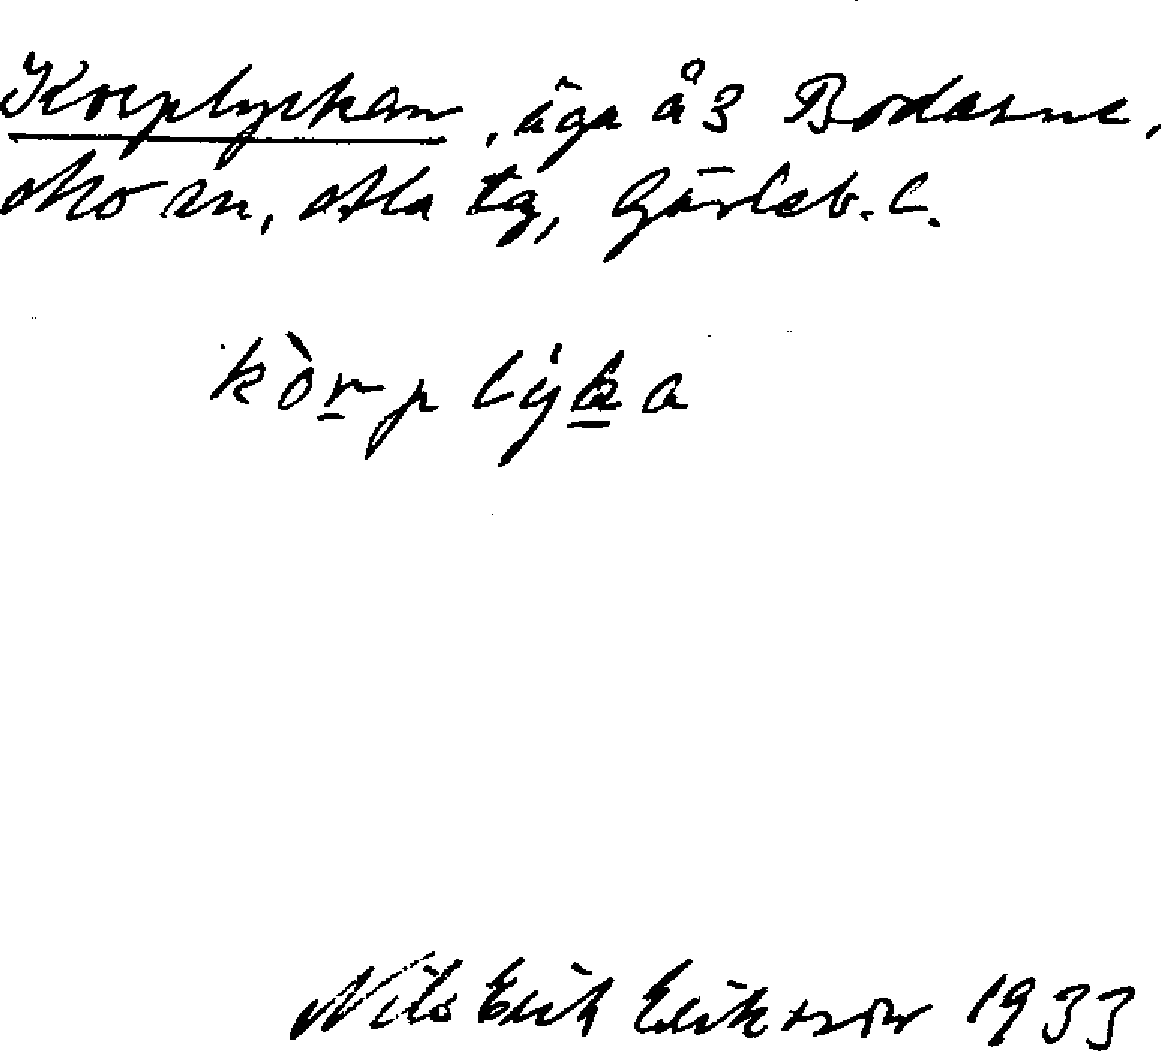 Korplyckan, äga å 3 Bodarne,
Mo sn, Ala tg, Gävleb. l.
kòrp lýka
Nils Erik Eriksson 1933